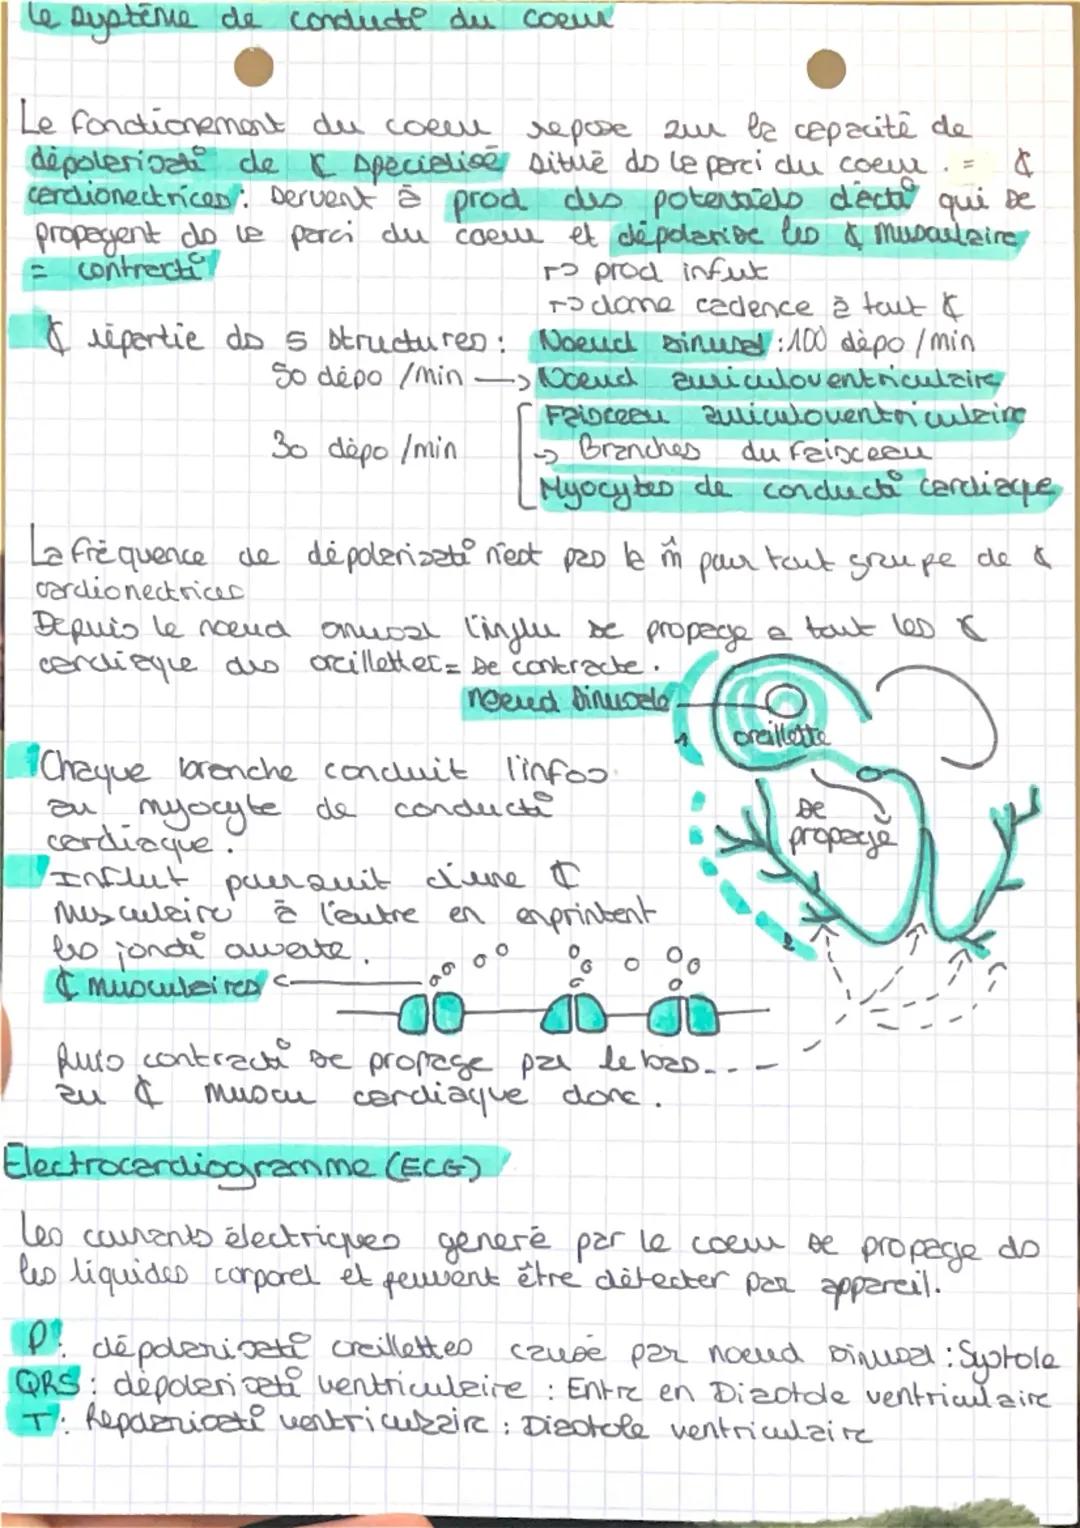 Le système de conducti° du coeur
Le fonctionement du coeur repose sur la capacité de
dépolarisati° de ₵ spécialisé situé ds le paroi du coeur. = ₵
cardionectrices: servent à prod des potentiels d'acti° qui se
propagent ds le paroi du coeur et dépolarise les ₵ musculaire
= contracti°
↳ prod influt
↳ donne cadence à tout ₵
₵ répartie ds 5 structures: Noeud sinusal: 100 dépo/min
50 dépo/min → Noeud auriculoventriculaire
Faisceau auriculoventriculaire
30 dépo/min → Branches du faisceau
Myocytes de conducti° cardiaque
La fréquence de dépolarisati° n'est pas la m̂ pour tout groupe de ₵
cardionectrices
Depuis le noeud sinusal l'influ se propage a tout les ₵
cardiaque des oreillettes = se contracte.
noeud sinusale
oreillette
1
Chaque branche conduit l'infos
au myocyte de conducti°
cardiaque.
se
propage
Influt poursuit d'une ₵
musculaire à l'autre en enprintent
les joncti° ouverte.
2
₵ musculaires
Puis contracti° se propage par le bas...
au ₵ muscu cardiaque donc.
Électrocardiogramme (ECG)
Les courants électriques generé par le coeur se propage ds
les liquides corporel et peuvent être détecter par appareil.
P: dépolarisati° oreillettes causé par noeud sinusal: Systole
QRS: dépolarisati° ventriculaire: Entre en Diastole ventriculaire
T: Repolarisati° ventriculaire: Diastole ventriculaire